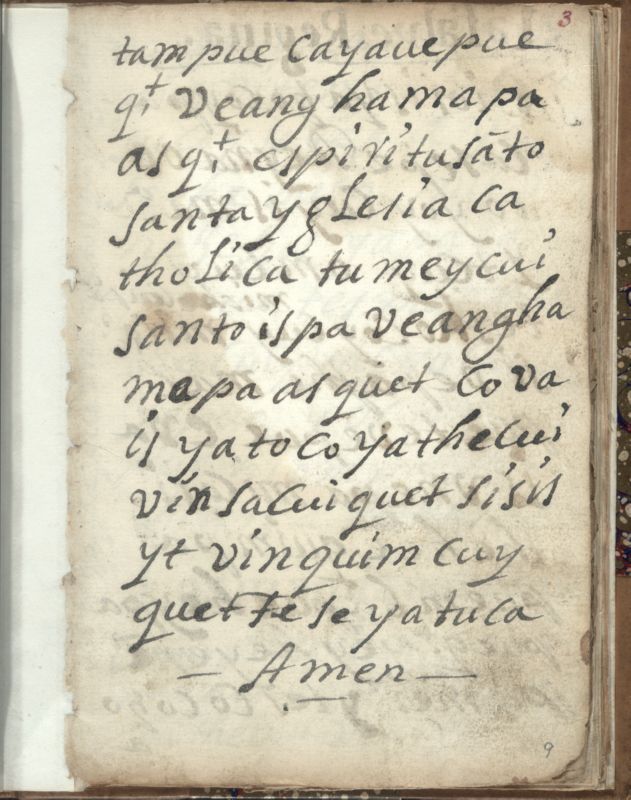 3
tam pue cayauepue
q̃ veang hamapa
as q̃ espiritusãto
santa yglesia ca
tholica tumeycui
santo is pa veangha
mapa as quet cova
is ya to co yathecui
vinsacuiquet sisis
yt vinquimcuy
quet te se yatuca
— Amen —
9